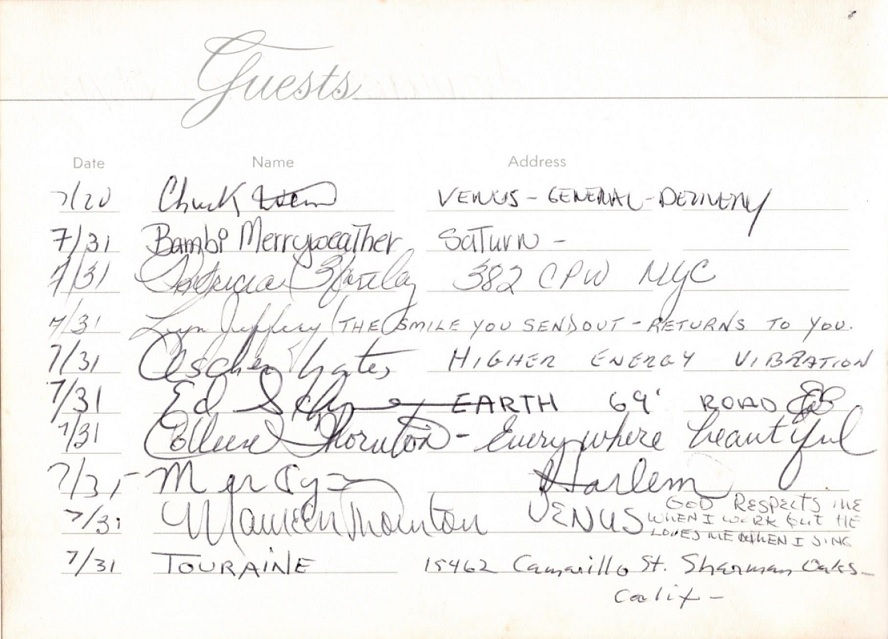 Guests
Date Name Address
7/20 Chuck VENUS - GENERAL - DELIVERY
7/31 Bambi Merryweather Saturn -
7/31 Patricia 382 CPW NYC
7/31 Lyn Jeffery (THE SMILE YOU SENDOUT - RETURNS TO YOU.
7/31 Ascher Yates HIGHER ENERGY VIBRATION
7/31 Ed EARTH 69' ROAD
7/31 Colleene Thornton - Everywhere beautiful
7/31 - Harlem
7/31 Maureen Thornton VENUS GOD RESPECTS ME
WHEN I WORK BUT HE
LOVES ME WHEN I SING
7/31 TOURAINE 15462 Camarillo St. Sherman Oaks -
Calif -